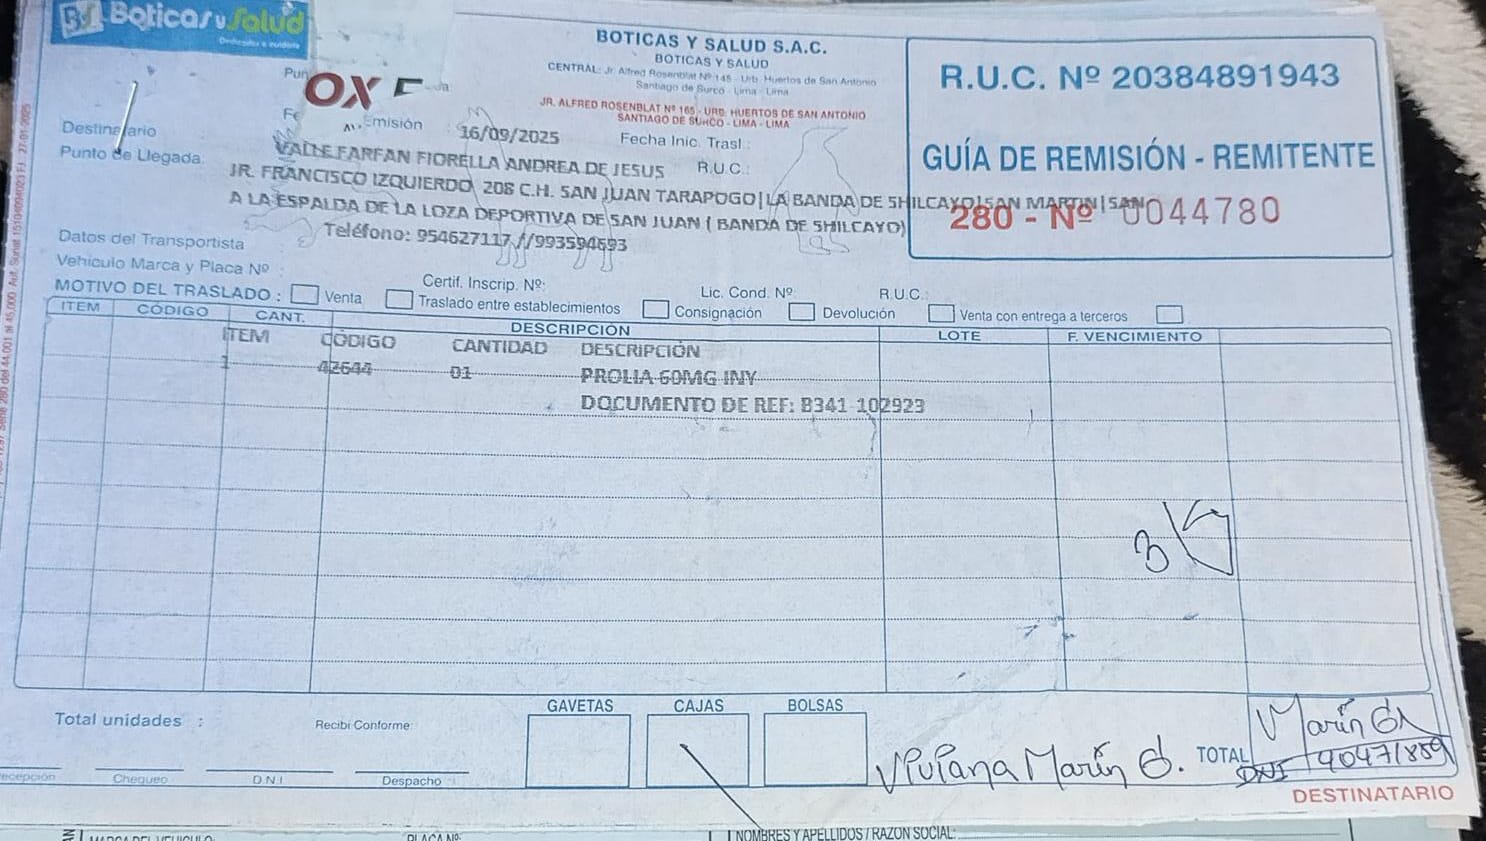 Boticas y Salud
BOTICAS Y SALUD S.A.C.
BOTICAS Y SALUD
CENTRAL: Jr. Alfred Rosenblat Nº 145 - Urb. Huertos de San Antonio
Santiago de Surco - Lima - Lima
JR. ALFRED ROSENBLAT Nº 165 - URB. HUERTOS DE SAN ANTONIO
SANTIAGO DE SURCO - LIMA - LIMA
R.U.C. Nº 20384891943
GUÍA DE REMISIÓN - REMITENTE
280 - Nº 0044780
OX
Emisión 16/09/2025 Fecha Inic. Trasl.:
Destinatario VALLE FARFAN FIORELLA ANDREA DE JESUS R.U.C.:
Punto de Llegada: JR. FRANCISCO IZQUIERDO 208 C.H. SAN JUAN TARAPOGO|LA BANDA DE SHILCAYO|SAN MARTIN|SAN
A LA ESPALDA DE LA LOZA DEPORTIVA DE SAN JUAN ( BANDA DE SHILCAYO)
Teléfono: 954627117 //993594693
Datos del Transportista
Vehículo Marca y Placa Nº : Certif. Inscrip. Nº: Lic. Cond. Nº R.U.C.:
MOTIVO DEL TRASLADO : Venta Traslado entre establecimientos Consignación Devolución Venta con entrega a terceros
ITEM CÓDIGO CANT. DESCRIPCIÓN LOTE F. VENCIMIENTO
ITEM CÓDIGO CANTIDAD DESCRIPCIÓN
1 42644 01 PROLIA 60MG INY
DOCUMENTO DE REF: B341-102923
3
Total unidades : Recibi Conforme: GAVETAS CAJAS BOLSAS
Viviana Marín G. TOTAL
Chequeo D.N.I. Despacho
DNI
DESTINATARIO
PLACA Nº:
NOMBRES Y APELLIDOS / RAZON SOCIAL: